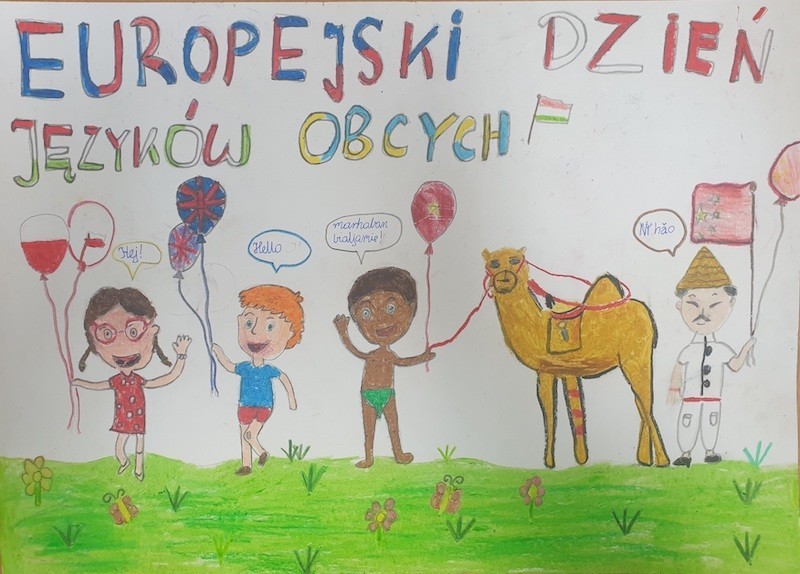 EUROPEJSKI DZIEŃ
JĘZYKÓW OBCYCH
Hej!
Hello
marhaban
bialjamie!
Nǐ hǎo